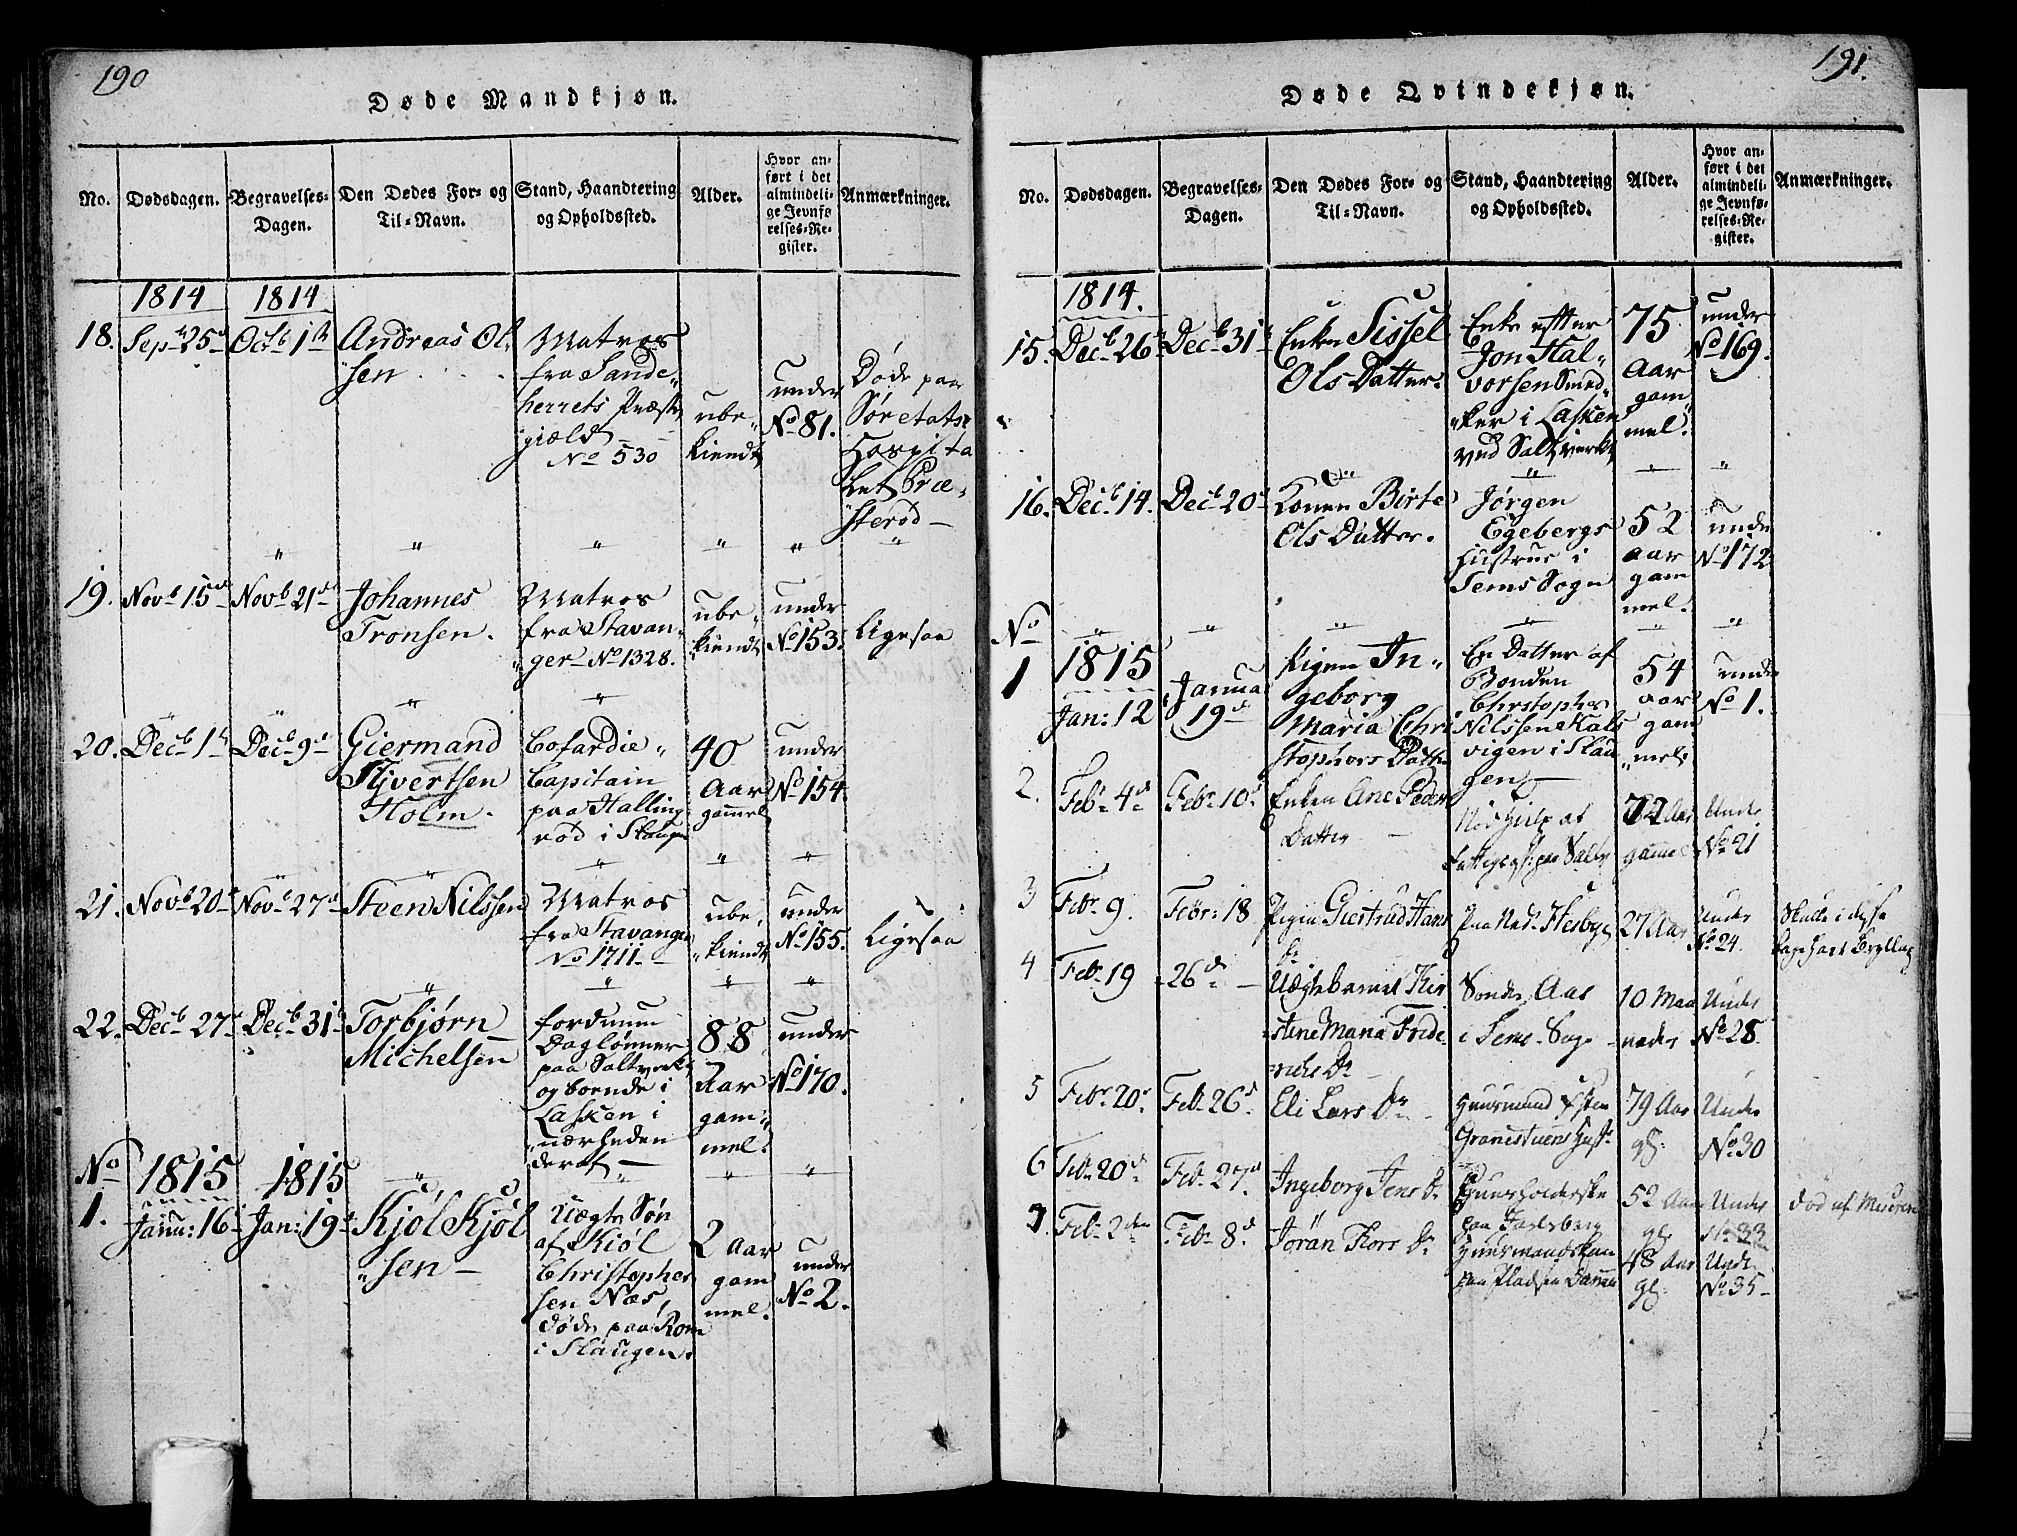 190
Døde Mandkjøn.
No.
Dødsdagen.
Begravelses-
Dagen.
Den Dødes For- og
Til-Navn.
Stand, Haandtering
og Opholdssted.
Alder.
Hvor an-
ført i det
almindeli-
ge Jevnfø
relses-Re-
gister.
Anmærkninger.
1814
1814
18.
Octb 1
Andreas Ol,
sen
Matros
fra Sande„
herrets Præste
giæld
No 530
ube„
kiendt
under
No 81.
Døde paa
Søretats
Hospita
let Præ„
sterød
19.
Novb 15
Novb 21
Johannes
Tronsen.
Matros
fra Stavan„
ger No 1328.
ube„
kiendt
under
No 153.
Ligesaa
20.
Decb 1
Decb 9
Giermand
Syvertsen
Holm.
Cofardie„
Capitain
paa Halling
rød i Slaugen
40
Aar
gammel
under
No 154.
21.
Novb 20
Novb 27
Steen Nilssen
Matros
fra Stavanger
No 1711.
ube„
kiendt
under
No 155.
Ligesaa
22.
Decb 27
Decb 31
Torbjørn
Michelsen
fordum
Daglønner
paa Saltverket
og boende i
Lasken i
nærheden
deraf
88
Aar
gam„
mel.
under
No 170.
No
1815
1815
1.
Janu: 16
Jan: 19
Kjøl Kjøl
„sen
Uægte Søn
af Kiøl
Christopher
sen Næs,
døde paa Rom
i Slaugen.
2 Aar
gam
mel.
under
No 2.
191.
Døde Qvindekjøn.
No.
Dødsdagen.
Begravelses-
Dagen.
Den Dødes For- og
Til-Navn.
Stand, Haandtering
og Opholdssted.
Alder.
Hvor an-
ført i det
almindeli-
ge Jevnfø-
relses-Re-
gister.
Anmærkninger.
1814.
15.
Decb 26
Decb 31
Enken Sissel
Ols Datter.
Enke efter
Jon Hal„
vorsen Smed
„ker i Lasken
ved Saltverket
75
Aar
gam
mel.
under
No 169.
16.
Decb 14.
Decb 20
Konen Birte
Ols Datter.
Jørgen
Egebergs
Hustrue i
Sems Sogn
52
aar
gam
mel.
unde
No 172
No
1
1815
Jan: 12
Janua
19
Pigen In„
geborg
Maria Chri
stophers Datter
En Datter af
Bonden
Christopher
Nilssen Hals
vigen i Slau
gen
54
aar
gam
„mel
under
No 1.
2.
Febr 4
Febr 10
Enken Ane Peders
Datter
gammel
Under
No 21
3
Febr 9.
Febr: 18
Pigen Giertrud Hans
Dr
27 Aar
Under
No 24.
4
Febr 19
26
Uægtebarnet Kir
stine Maria Fride
richs Dr
Søndr Aas
i Sems Sogn
10 Maa
neder
Under
No 28.
5
Febr 20
Feb 26
Eli Lars Dr
Huusmand
79 Aar
gl.
Under
No 30
6
Feb 20
Feb 27
Ingeborg Jens Dr
Huusholderske
paa Jarlsberg
52 Aar
gl
Under
No 33
7.
Feb 2
Feb 8
Jøran Thors Dr
Huusmandskone
paa Pladsen
48 Aar
gl.
Under
No 35